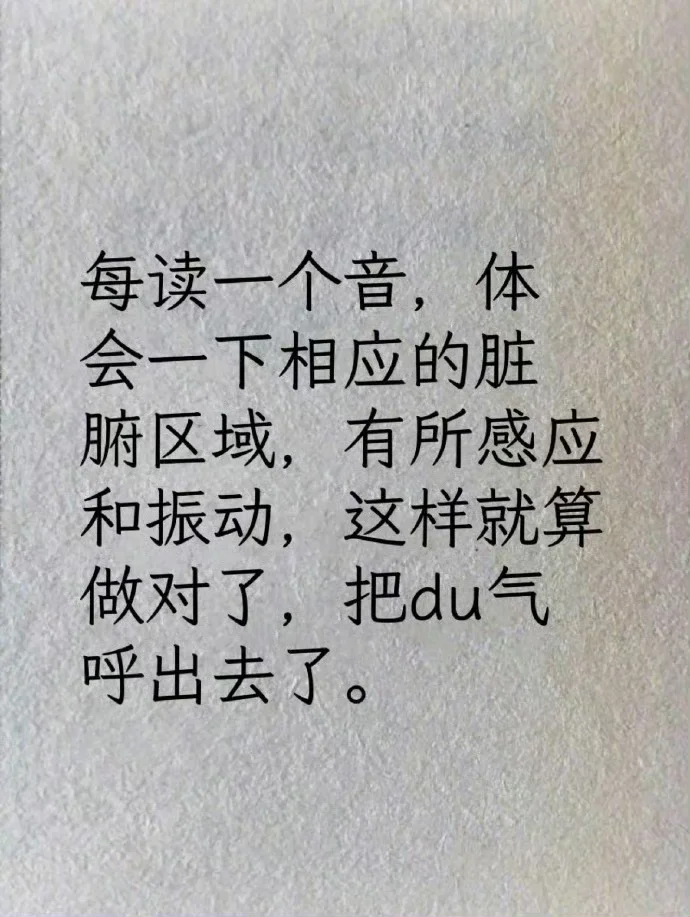 每读一个音，体
会一下相应的脏
腑区域，有所感应
和振动，这样就算
做对了，把du气
呼出去了。